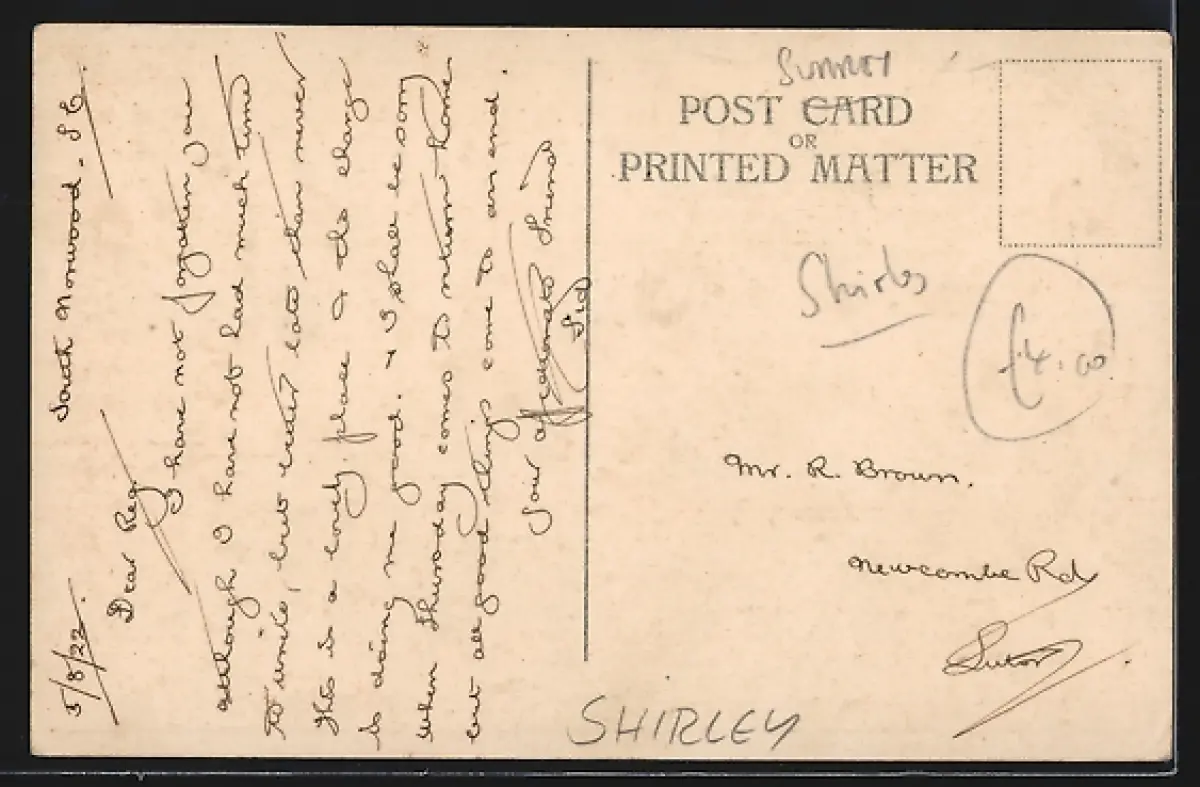 South Norwood. S E.
5/8/22.
Dear Reg
I have not forgotten you
although I have not had much time
to write, but better late than never
this is a lovely place & the change
is doing me good. & I shall be sorry
when Thursday comes to return home
but all good things come to an end.
Your affectionate Friend
Sid
SURREY
POST CARD
OR
PRINTED MATTER
Shirley
£4.00
Mr. R. Brown.
Newcombe Rd
SHIRLEY